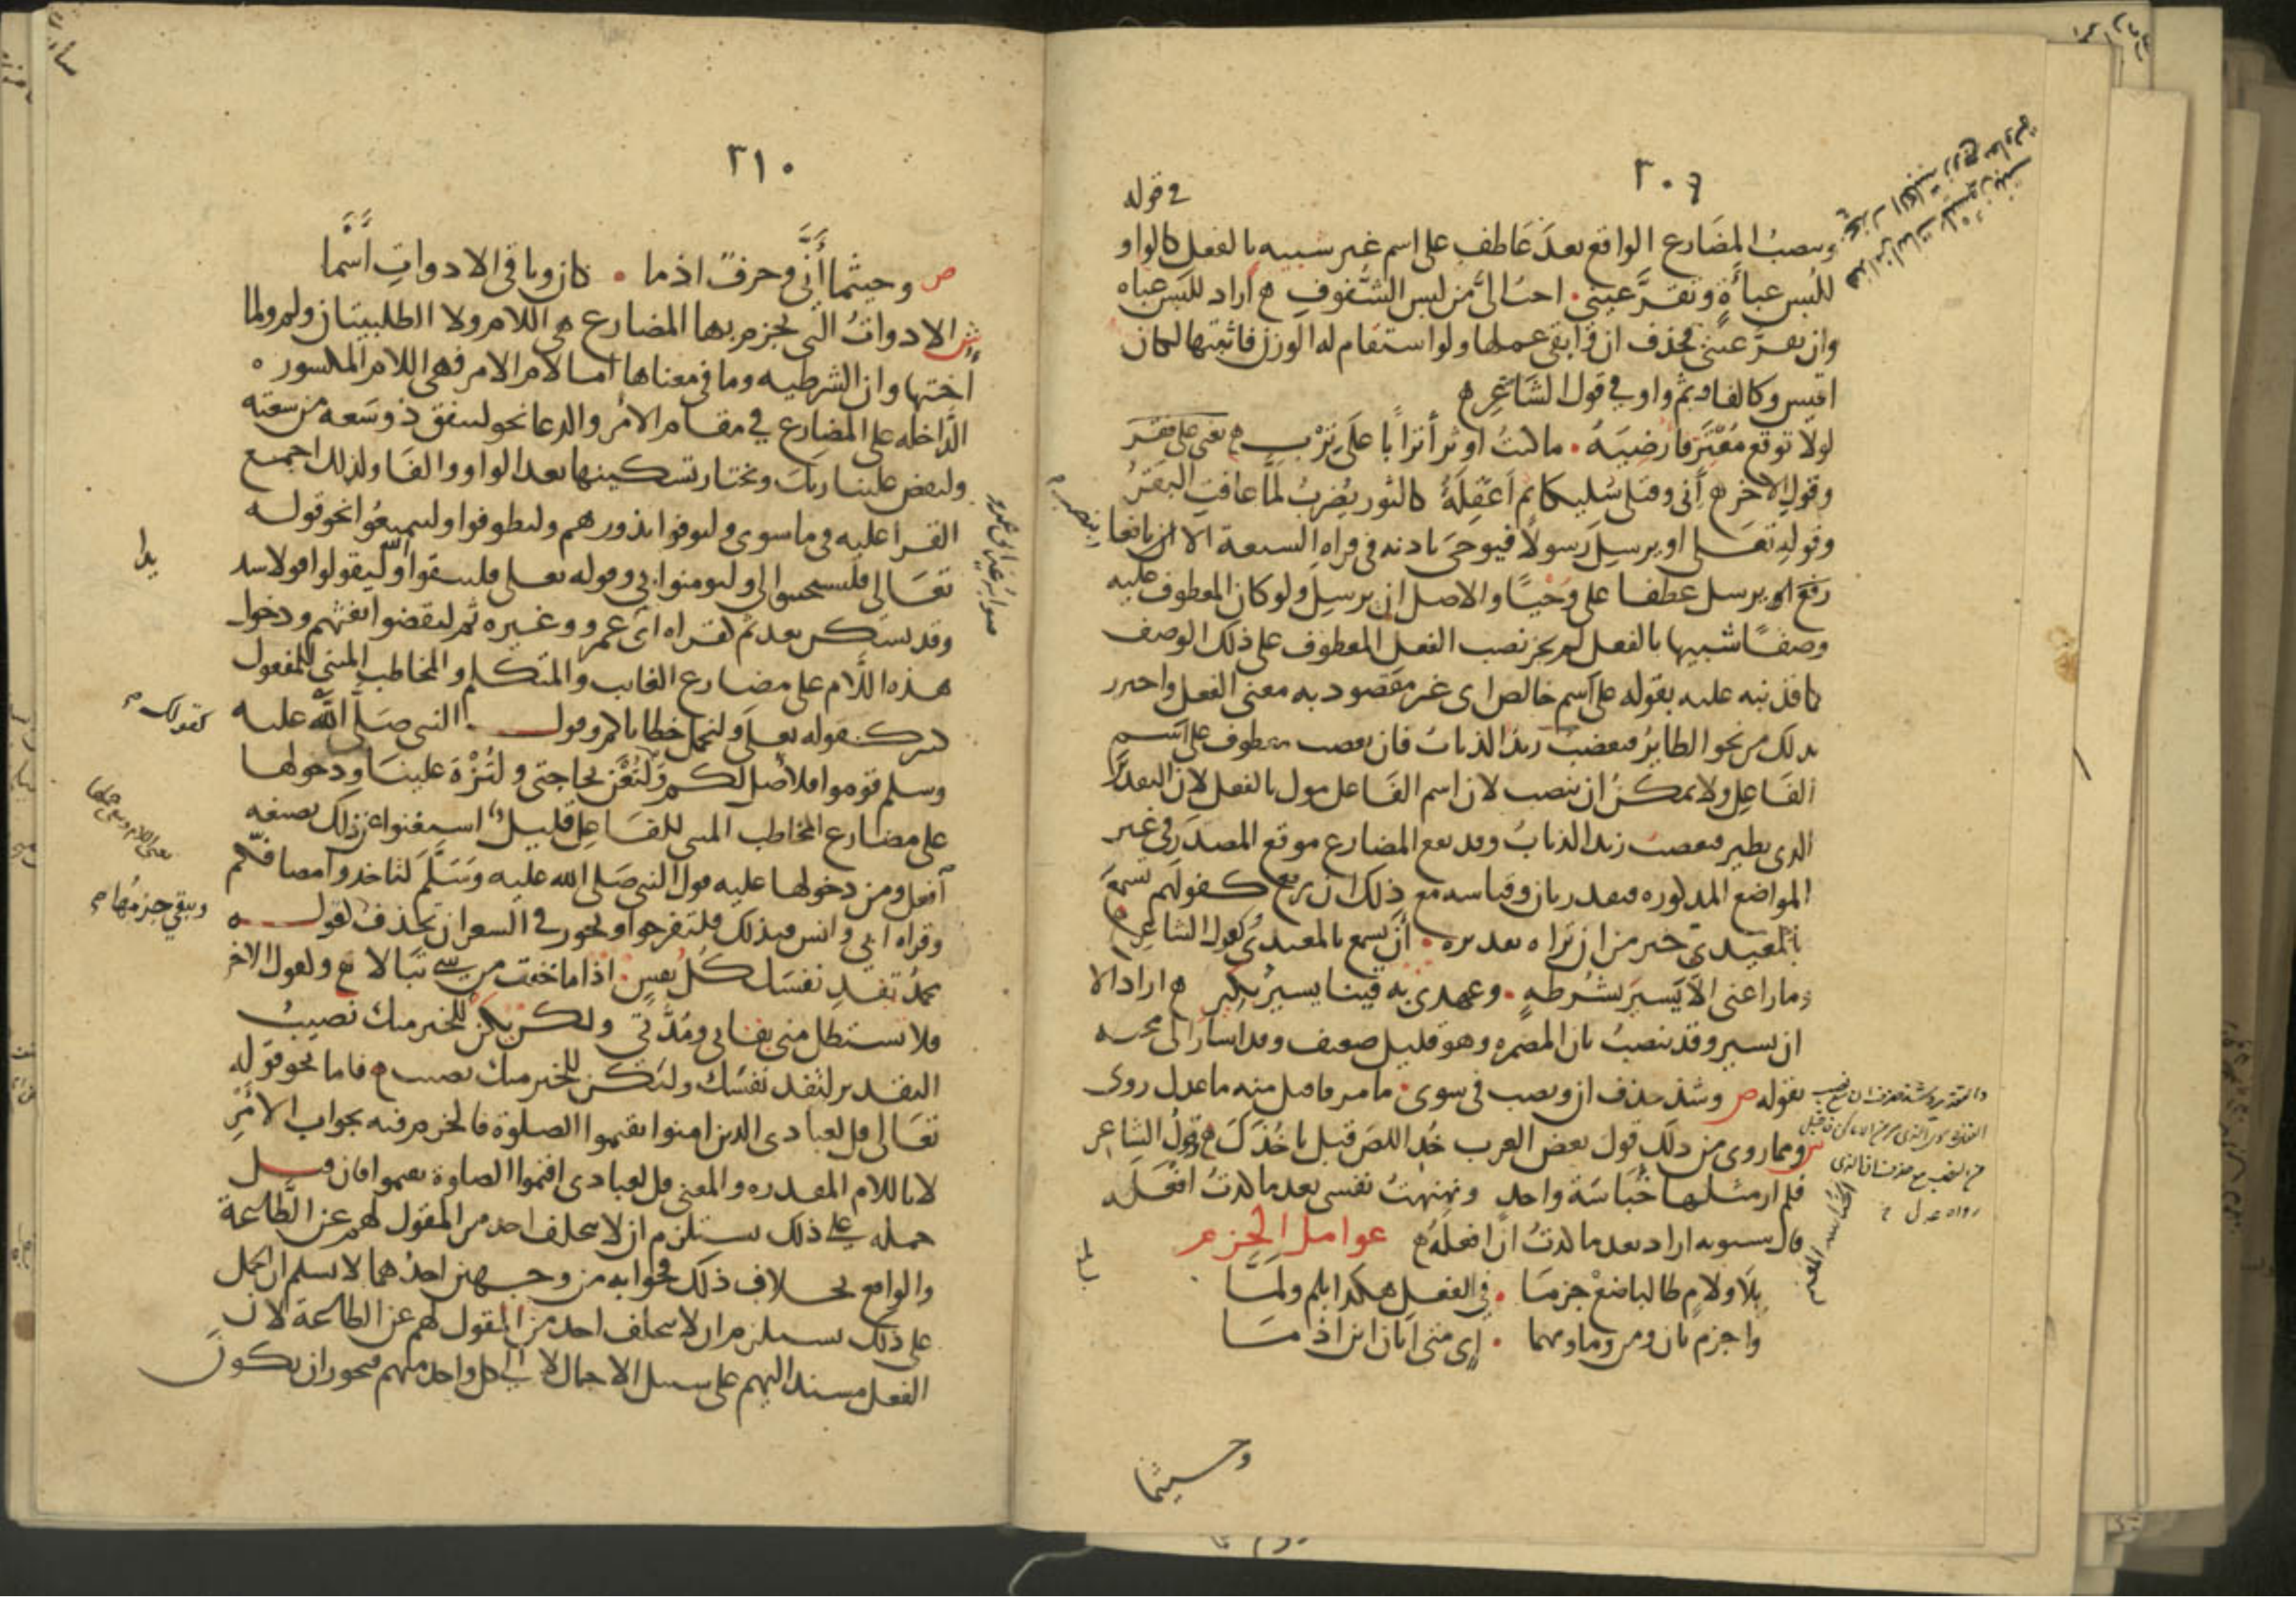 ٣٠٩
في قوله
وينصب المضارع الواقع بعد عاطف على اسم غير شبيه بالفعل كالواو
للبس عباءة وتقر عيني . احب الي من لبس الشفوف أراد للبس عباءه
وان تقر عيني فحذف ان وابقى عملها ولو استقام له الوزن فاثبتها لكان
اقيس وكالفا وثم واو في قول الشاعر
لولا توقع معتر فارضيه . ما كنت اوثر أترابا على ترب
وقول الاخر اني وقتلي سليكا ثم اعقله كالثور يضرب لما عافت البقر
وقوله تعالى او يرسل رسولا فيوحي باذنه في قراه السبعة الا نافعا
رفع او يرسل عطفا على وحيا والاصل ان يرسل ولو كان المعطوف عليه
وصفا شبيها بالفعل لم يجز نصب الفعل المعطوف على ذلك الوصف
كما قد نبه عليه بقوله على اسم خالص اى غير مقصود به معنى الفعل واحترز
بذلك من نحو الطاير فيغضب زيد الذباب فان يغضب معطوف على اسم
الفاعل ولا يمكن ان ينصب لان اسم الفاعل مول بالفعل لان التقدير
الذي يطير فيغضب زيد الذباب وقد يقع المضارع موقع المصدر في غير
المواضع المذكوره فيقدر بان وقياسه مع ذلك ان يرفع كقولهم تسمع
بالمعيدي خير من ان تراه تقديره . أن تسمع بالمعيدي وكقول الشاعر
وما راعني الا يسير بشرطه . وعهدي به قينا يسير بكير اراد الا
ان يسير وقد ينصب بان المضمره وهو قليل ضعيف وقد اشار الى مجيئه
بقوله ص وشذ حذف ان ونصب في سوى . ما مر فاقبل منه ما عدل روى
ش ومما روي من ذلك قول بعض العرب خذ اللص قبل ياخذك وقول الشاعر
فلم ار مثلها خباسة واحد ونهنهت نفسي بعد ما كدت افعله
قال سيبويه اراد بعد ما كدت ان افعله عوامل الجزم
بلا ولام طالبا ضع جزما . في الفعل هكذا بلم ولما
واجزم بان ومن وما ومهما . اي متى ايان اين اذ ما
وحيثما
٣١٠
ص وحيثما أنى وحرف اذ ما . كان وباقي الادوات أسما
ش الادوات التي يجزم بها المضارع هي اللام ولا الطلبيتان ولم ولما
اختها وان الشرطيه وما في معناها اما لام الامر فهي اللام المكسوره
الداخله على المضارع في مقام الامر والدعا نحو لينفق ذو سعه من سعته
وليقض علينا ربك ويختار تسكينها بعد الواو والفا ولذلك اجمع
القرا عليه في ما سوى وليوفوا نذورهم وليطوفوا وليتمتعوا نحو قوله
تعالى فليستجيبوا لي وليومنوا بي وقوله تعالى فليتقوا الله وليقولوا قولا سديدا
وقد تسكن بعد ثم كقراه ابي عمرو وغيره ثم ليقضوا تفثهم ودخول
هذه اللام على مضارع الغايب والمتكلم والمخاطب المبني للمفعول
كثير كقوله تعالى ولنحمل خطاياكم وقول النبي صلى الله عليه
وسلم قوموا فلاصل لكم ولتعن بحاجتي ولتزه علينا ودخولها
على مضارع المخاطب المبني للفاعل قليل استغنوا عن ذلك بصيغه
أفعل ومن دخولها عليه قول النبي صلى الله عليه وسلم لتاخذوا مصافكم
وقراه ابي وانس فبذلك فلتفرحوا ويجوز في الشعر ان تحذف كقوله
محمد تفد نفسك كل نفس . اذا ما خفت من شي تبالا ولقول الاخر
فلا تستطل مني بقائي ومدتي ولكن يكن للخير منك نصيب
التقدير لتفد نفسك وليكن للخير منك نصيب فاما نحو قوله
تعالى قل لعبادي الذين امنوا يقيموا الصلوة فالجزم فيه بجواب الأمر
لا باللام المقدره والمعنى قل لعبادي اقيموا الصلوة يقيموا فان قيل
حمله على ذلك يستلزم ان لا يتخلف احد من المقول لهم عن الطاعة
والواقع بخلاف ذلك فجوابه من وجهين احدهما لا نسلم ان الحمل
على ذلك يستلزم ان لا يتخلف احد من المقول لهم عن الطاعة لان
الفعل مسند اليهم على سبيل الاجمال لا الى كل واحد منهم فيجوز ان يكون
كقولك
ويبقى جزمها